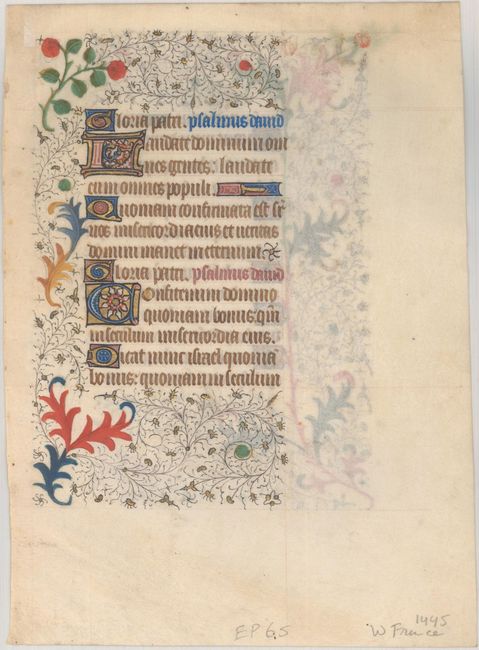 Gloria patri. psalmus dauid
Laudate dominum om
nes gentes: laudate
eum omnes populi
Quoniam confirmata est sr̄
nos misericordia eius et ueritas
domini manet in eternum
Gloria patri. psalmus dauid
Confitemini domino
quoniam bonus: qm̄
in seculum misericordia eius.
Dicat nunc israel quonia
bonus: quoniam in seculum
EP 6.5
1445
W France